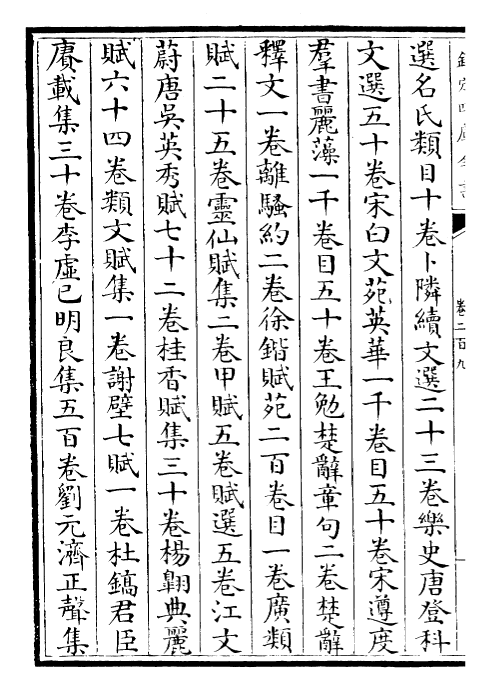 欽定四庫全書
卷二百九
選名氏類目十卷卜隣續文選二十三卷樂史唐登科
文選五十卷宋白文苑英華一千卷目五十卷宋遵度
羣書麗藻一千卷目五十卷王勉楚辭章句二卷楚辭
釋文一卷離騷約二卷徐鍇賦苑二百卷目一卷廣類
賦二十五卷靈仙賦集二卷甲賦五卷賦選五卷江文
蔚唐吳英秀賦七十二卷桂香賦集三十卷楊翺典麗
賦六十四卷類文賦集一卷謝壁七賦一卷杜鎬君臣
賡載集三十卷李虛已明良集五百卷劉元濟正聲集